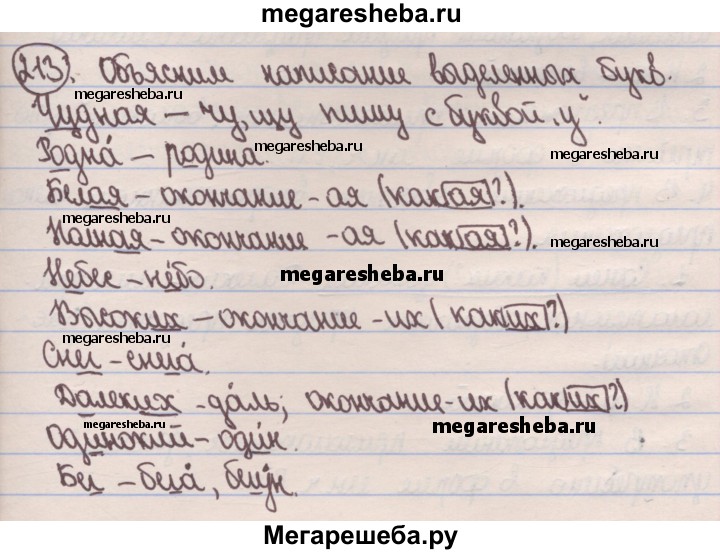 megaresheba.ru
213. Объясним написание выделенных букв.
megaresheba.ru megaresheba.ru
Чудная – чу, щу пишу с буквой „у".
megaresheba.ru
Родна́ – родина.
Белая – окончание -ая (какая?).
megaresheba.ru
Полная – окончание -ая (какая?).
megaresheba.ru
Небес – не́бо. megaresheba.ru
Высоких – окончание -их (каких?)
megaresheba.ru megaresheba.ru
Снег – снега́.
Далеких – да́ль; окончание -их (каких?)
megaresheba.ru megaresheba.ru
Одинокий – оди́н.
megaresheba.ru
Бег – бега́, бегу́н.
Мегарешеба.ру